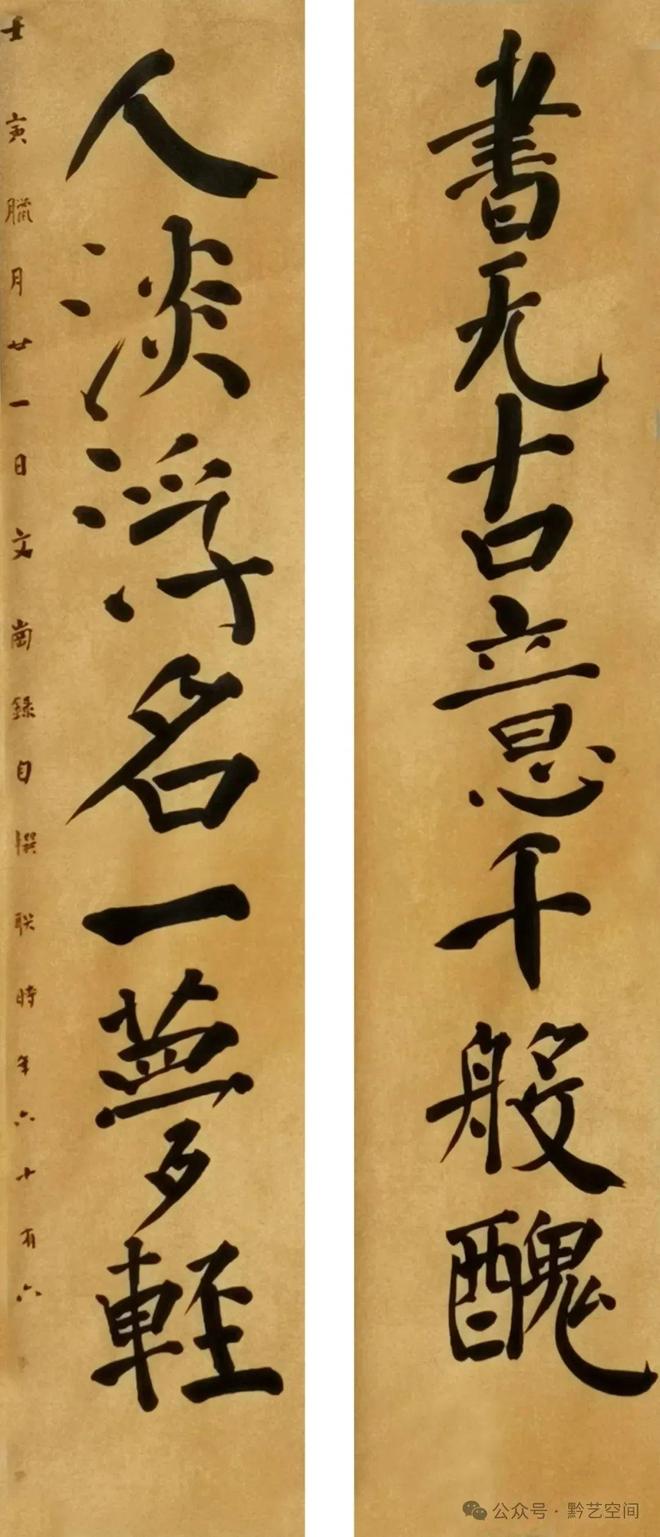 書无古意千般醜
人淡浮名一夢輕
壬寅臘月廿一日文崗錄自撰联時年六十有六
公众号·黔艺空间